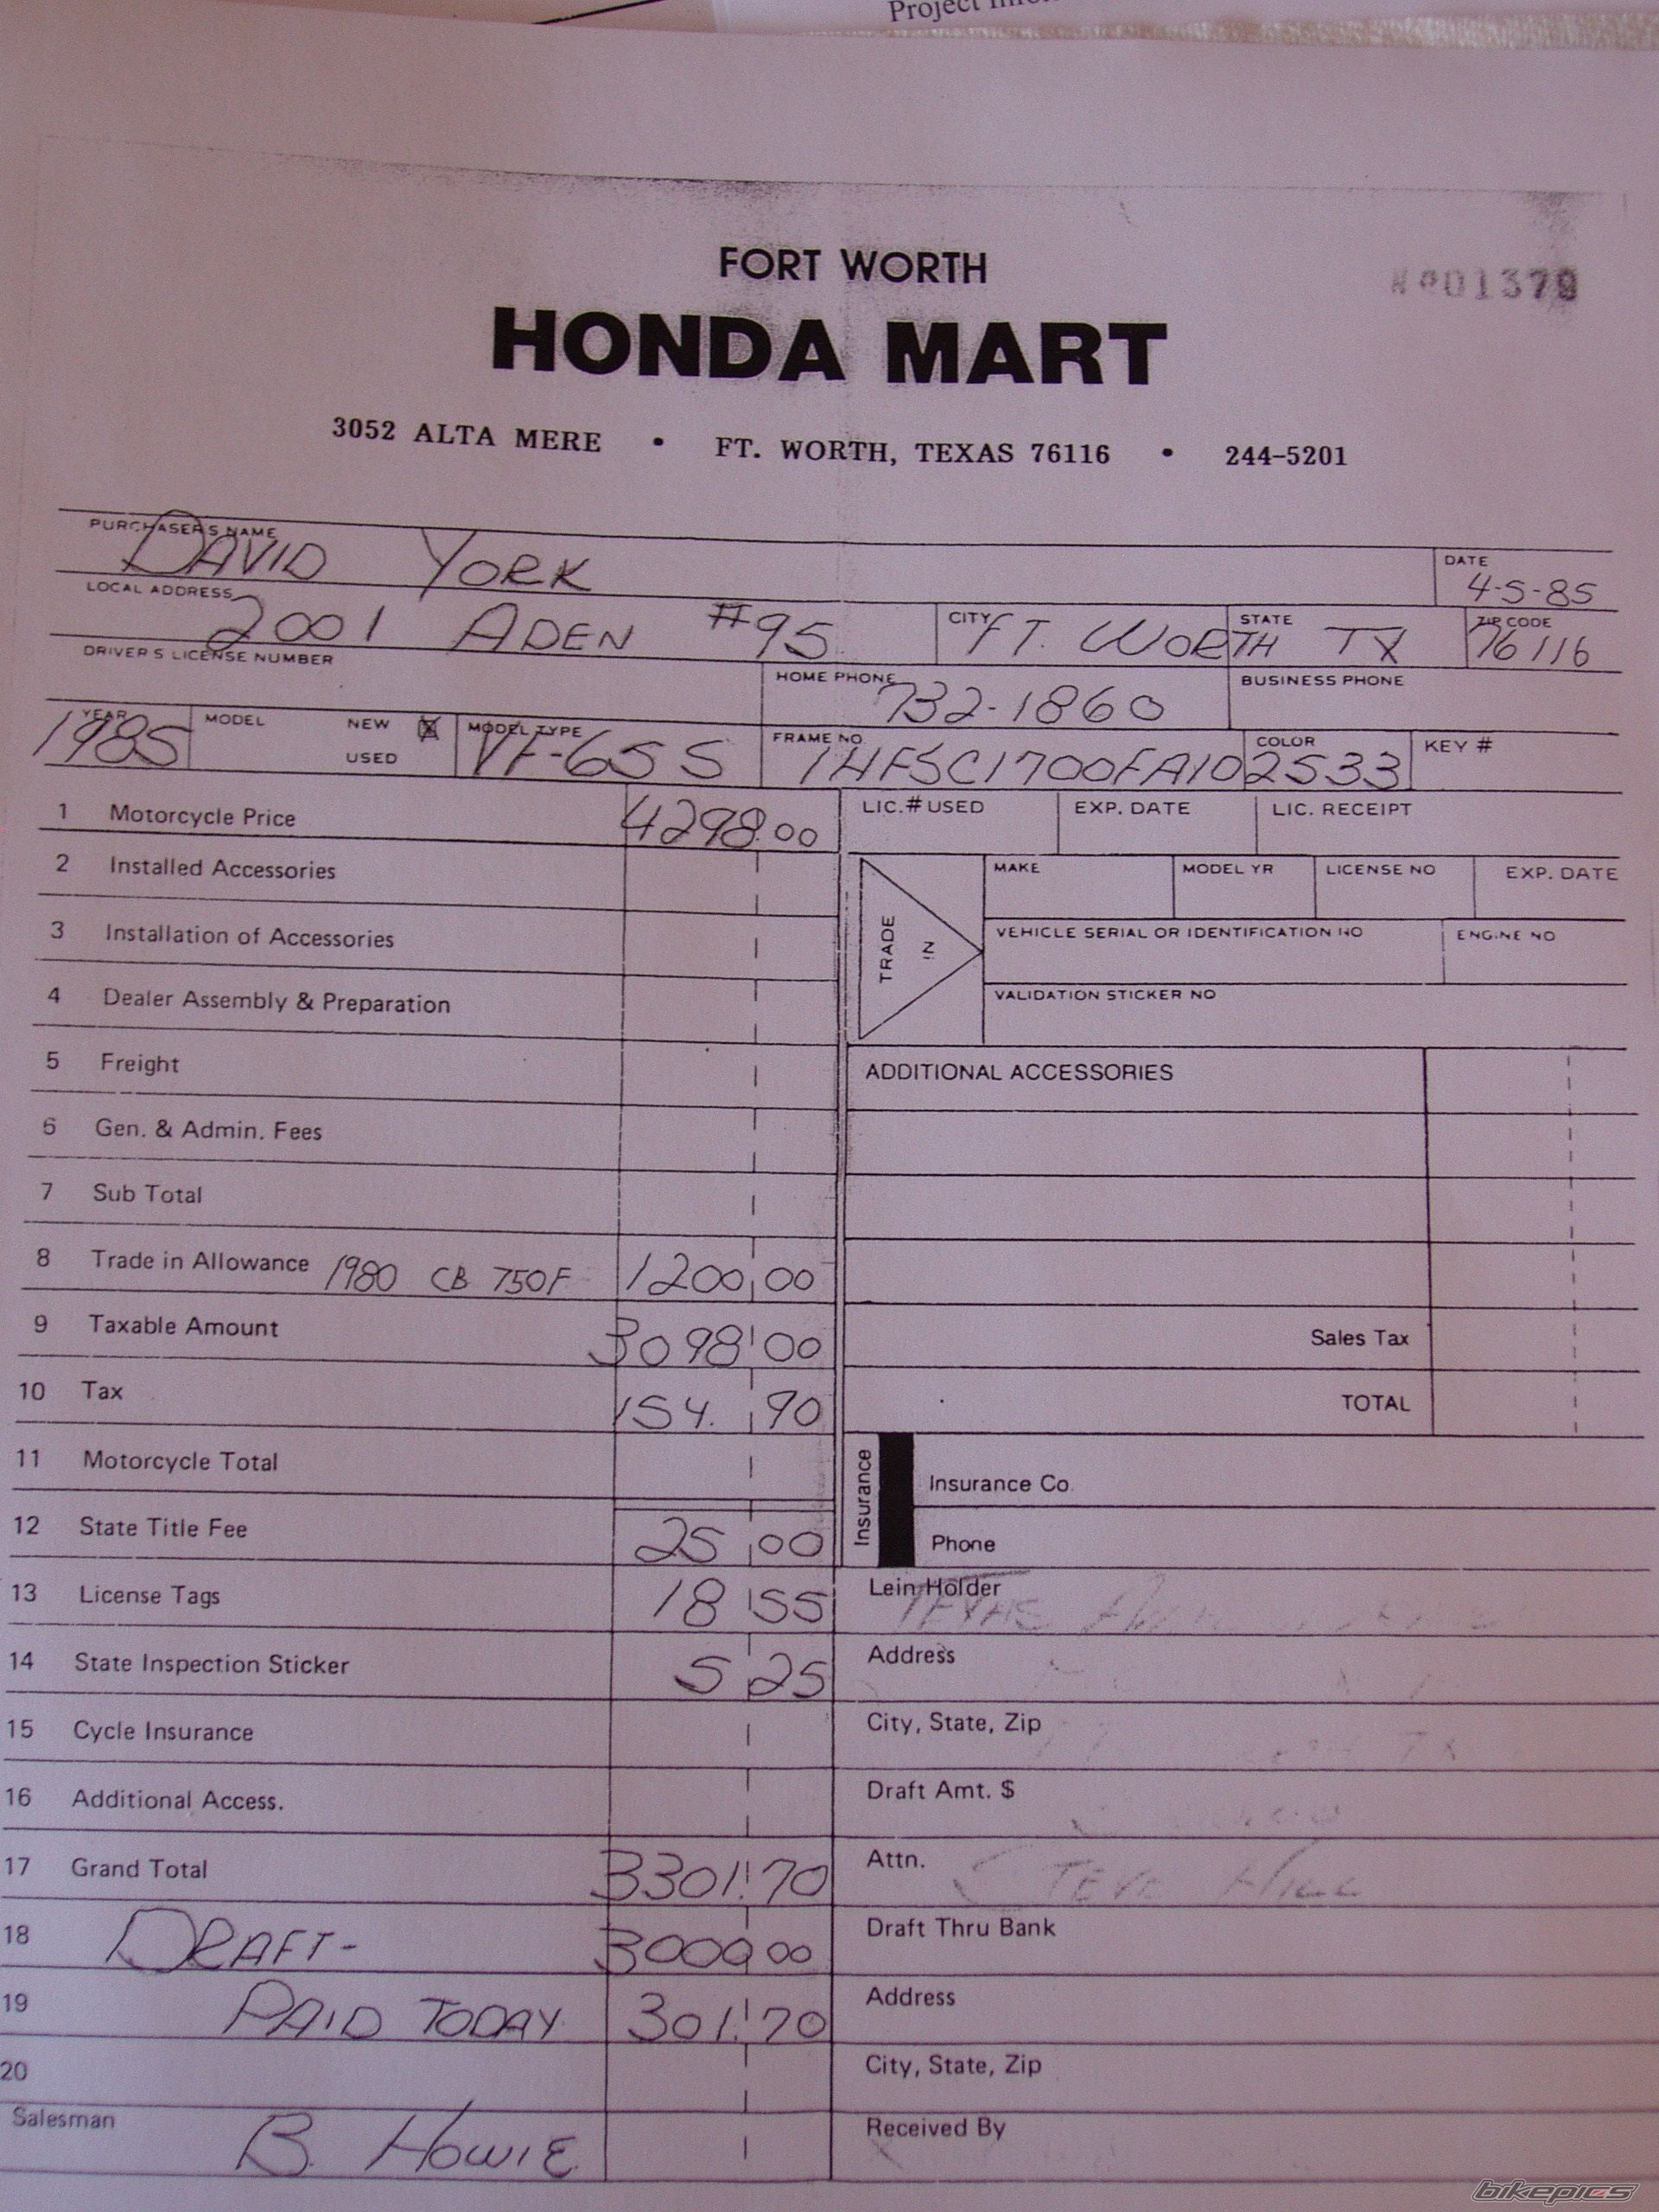 Project
FORT WORTH
Nº01379
HONDA MART
3052 ALTA MERE • FT. WORTH, TEXAS 76116 • 244-5201
PURCHASER'S NAME DAVID YORK DATE 4-5-85
LOCAL ADDRESS 2001 ADEN #95 CITY FT. WORTH STATE TX ZIP CODE 76116
DRIVER'S LICENSE NUMBER HOME PHONE 732-1860 BUSINESS PHONE
YEAR 1985 MODEL NEW X USED MODEL TYPE VF-65 S FRAME NO. 1HFSC1700FA102533 COLOR KEY #
1 Motorcycle Price 4298.00
LIC.# USED EXP. DATE LIC. RECEIPT
2 Installed Accessories
TRADE IN MAKE MODEL YR LICENSE NO EXP. DATE
3 Installation of Accessories
VEHICLE SERIAL OR IDENTIFICATION NO ENGINE NO
4 Dealer Assembly & Preparation
VALIDATION STICKER NO
5 Freight
ADDITIONAL ACCESSORIES
6 Gen. & Admin. Fees
7 Sub Total
8 Trade in Allowance 1980 CB 750F 1200.00
9 Taxable Amount 3098.00
Sales Tax
10 Tax 154.90
TOTAL
11 Motorcycle Total
Insurance Insurance Co.
12 State Title Fee 25.00
Phone
13 License Tags 18.55
Lein Holder TEXAS
14 State Inspection Sticker 5.25
Address
15 Cycle Insurance
City, State, Zip TX
16 Additional Access.
Draft Amt. $
17 Grand Total 3301.70
Attn. STEVE HILL
18 DRAFT- 3000.00
Draft Thru Bank
19 PAID TODAY 301.70
Address
20
City, State, Zip
Salesman B. HOWIE
Received By
bikepics